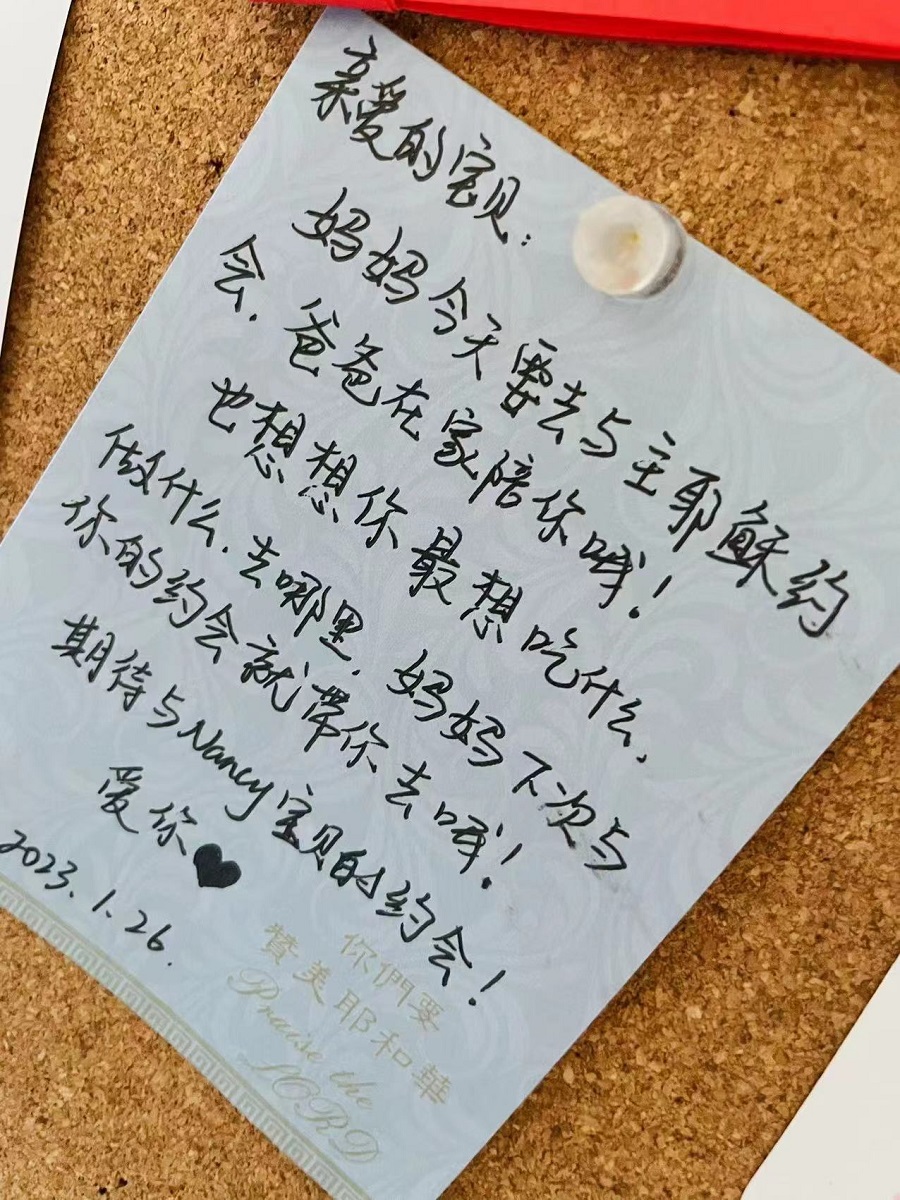 亲爱的宝贝:
妈妈今天要去与主耶稣约
会.爸爸在家陪你哦!
也想想你最想吃什么、
做什么.去哪里.妈妈下次与
你的约会就带你去哦!
期待与Nancy宝贝的约会!
爱你♥
2023.1.26.
你們要
贊美耶和華
Praise the
LORD